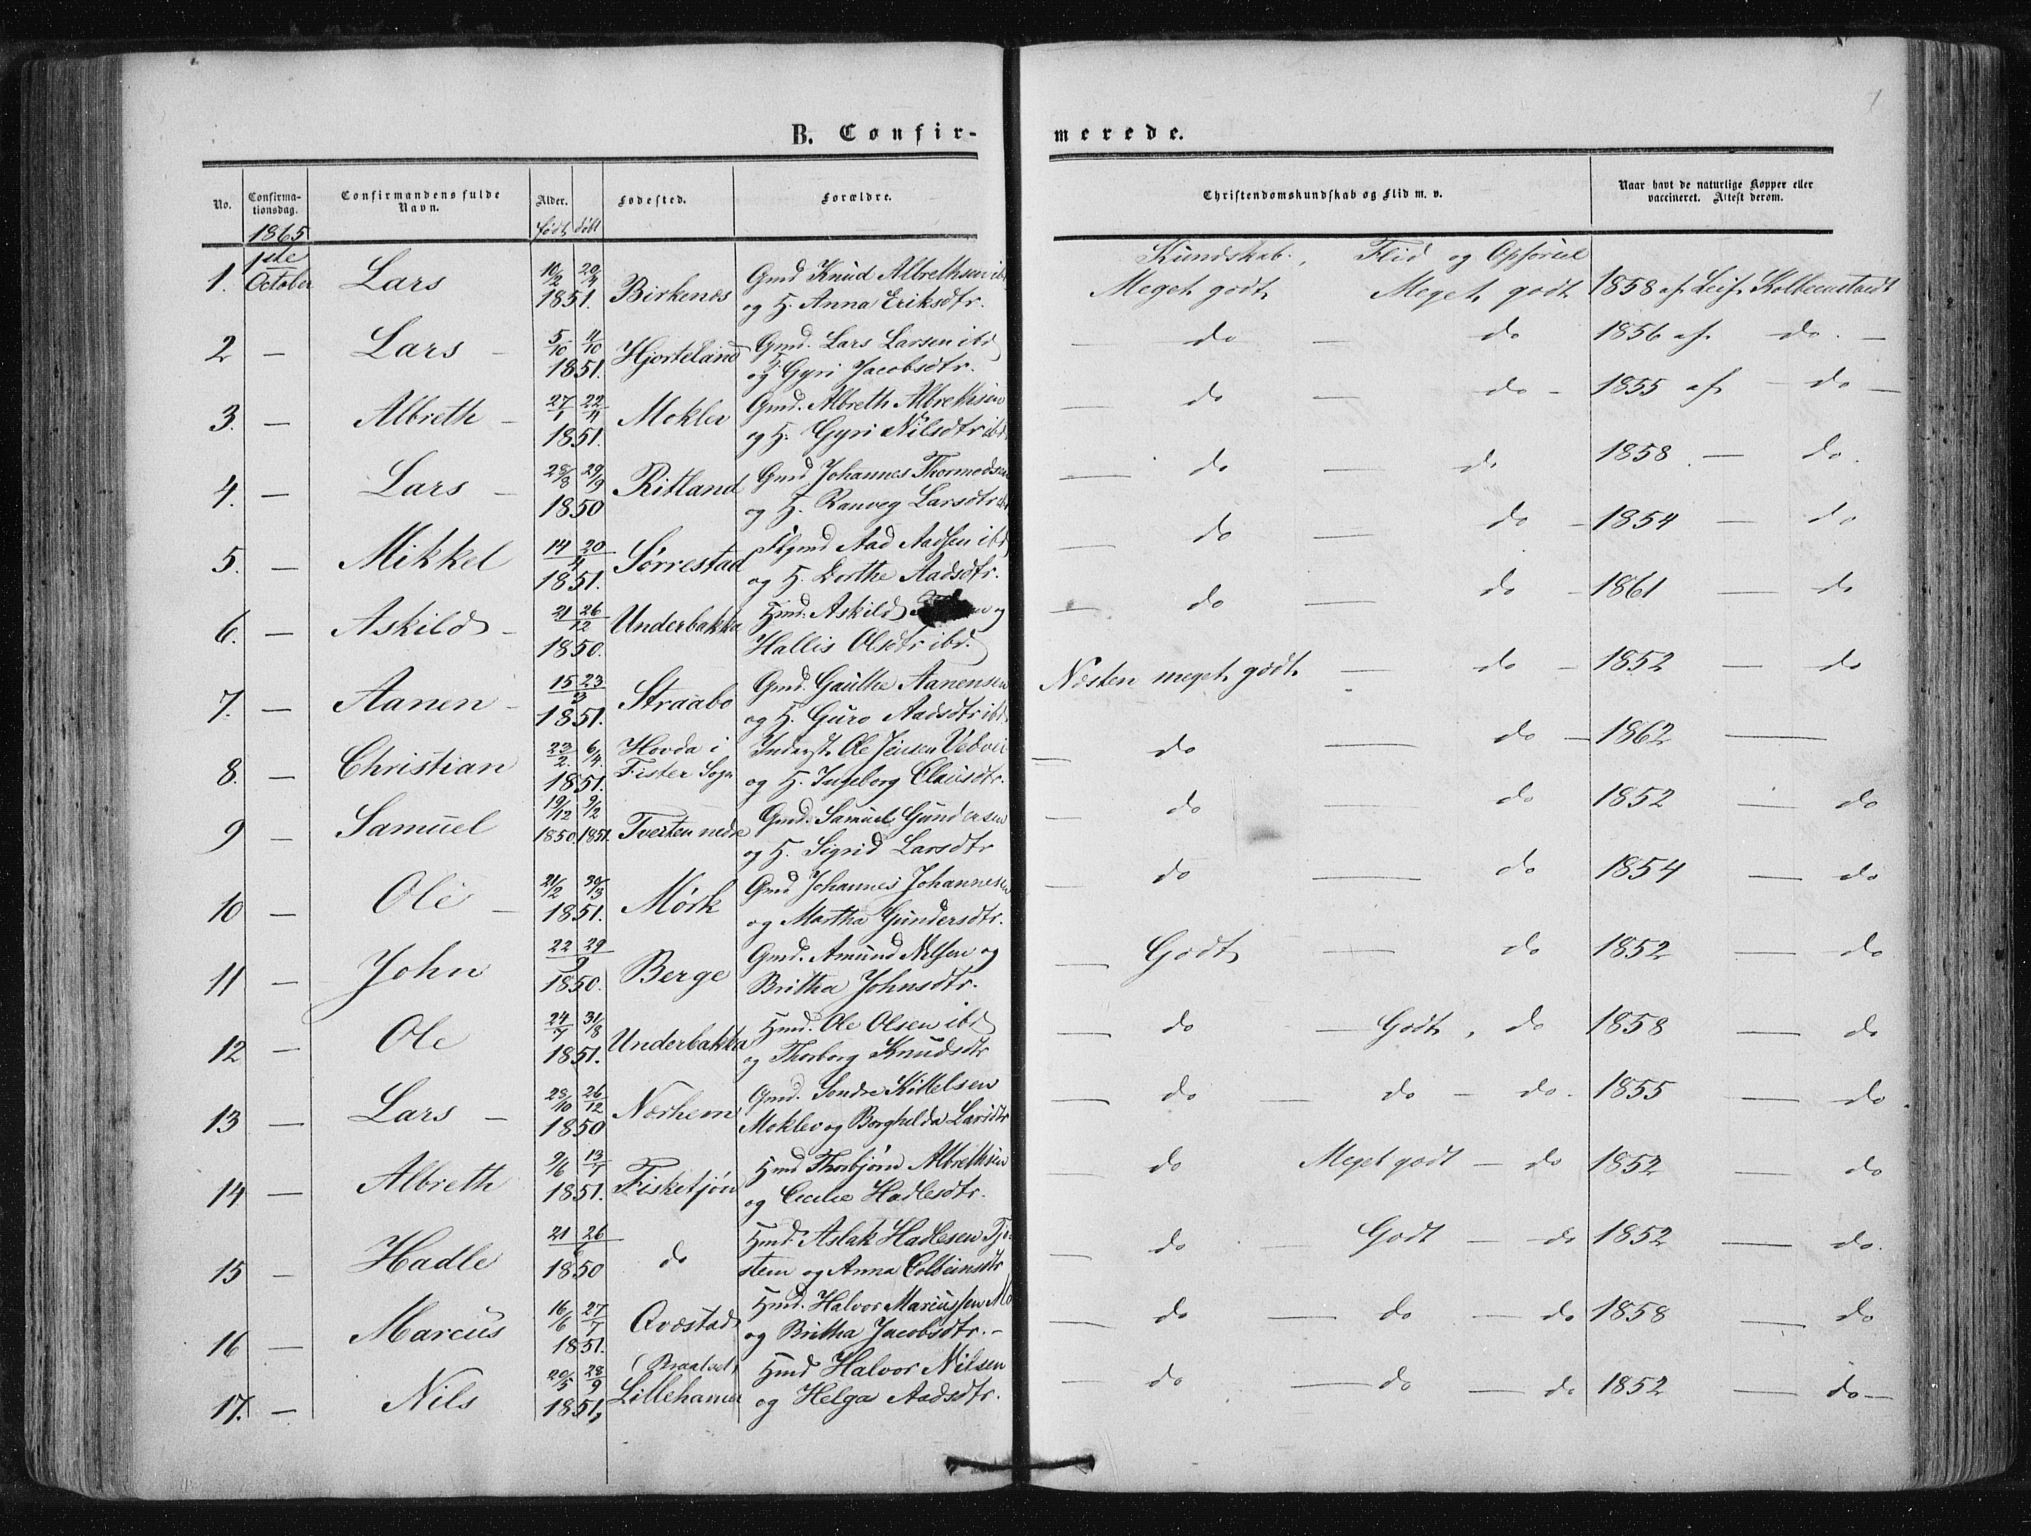 B. Confir-
merede.
No.
Confirma-
tionsdag.
Confirmandens fulde
Navn.
Alder.
Fødested.
Forældre.
Christendomskundskab og Flid m. v.
Naar havt de naturlige Kopper eller
vaccineret. Attest derom.
1865
født døbt
Kundskab. Flid og Opførsel
1. 1ste October Lars 10/2 20/4 1851. Birkenes Gmd Knud Albrethsen ibd
og H. Anna Eriksdtr. Meget godt Meget godt 1858 af
2 — Lars — 5/10 11/10 1851. Hjorteland Gmd. Lars Larsen ibd
og Gyri Jacobsdtr. — do — do 1856 af do. —
3. — Albreth — 27/1 22/4 1851. Moklev Gmd. Albreth Albrethsen
og H. Gyri Nilsdtr ibd — do — do — 1855 af — do —
4. — Lars — 28/8 29/9 1850 Ritland Gmd Johannes Thormodsen
og H. Ranveg Larsdtr — do — do 1858 — do.
5. — Mikkel 14 20/4 1851. Sørrestad Aad Aadsen ibd
og H. Dorthe Aadsdtr. — do do — 1854 — do
6. — Askild — 21 26/12 1850. Underbakka Hmd. Askild og
Hallis Olsdtr ibd. — do — do — 1861 — do
7. — Aanen — 15 23/3 1851. Straabo Gmd. Gauthe Aanensen
og H. Guro Aadsdtr ibd Næsten meget godt — do — 1852 — do
8. — Christian 23/2. 6/4. 1851. Hovda i
Fister Sogn Inderst Ole Jensen
og H. Ingeborg Clausdtr. — do — do — 1862 —
9 — Samuel 19/12 1850. 9/2 1851. Tverten nedre Gmd. Samuel Gundersen
og H. Sigrid Larsdtr — do — do 1852 — do
10 — Ole — 21/2 30/3 1851. Mørk Gmd Johannes Johannesen
og Martha Gundersdtr. do — do 1854 — do
11 — John 22 29/9 1850. Berge Gmd. Amund Nilsen og
Britha Johnsdtr. — Godt — do 1852 — do
12 — Ole 24/7 31/8 1851. Underbakka Hmd. Ole Olsen ibd
og Thorborg Knudsdtr — do — Godt, do 1858 — do
13 — Lars — 28/10 26/12 1850 Nørhem Gmd. Sondre Kittelsen
Moklev og Borghilda Larsdtr — do do — do. 1855 — do.
14 — Albreth 9/6 13/7 1851. Fisketjøn Hmd Thorbjørn Albrethsen
og Cecilie Hadlesdtr. — do Meget godt — do 1852 — do
15 — Hadle 21 26 1850 do Hmd. Aslak Hadlesen
og Anna Colbeinsdtr — do — Godt — do 1852 — do.
16 — Marcus 16/6 27/7 1851. Qvæstad Hmd. Halvor Marcussen
og Britha Jacobsdtr. — — do — do — do 1858 — do
17. — Nils 20/5 28/9 1851, Lillehamer Hmd Halvor Nilsen
og Helga Aadsdtr. — do — do — do 1852 — do —